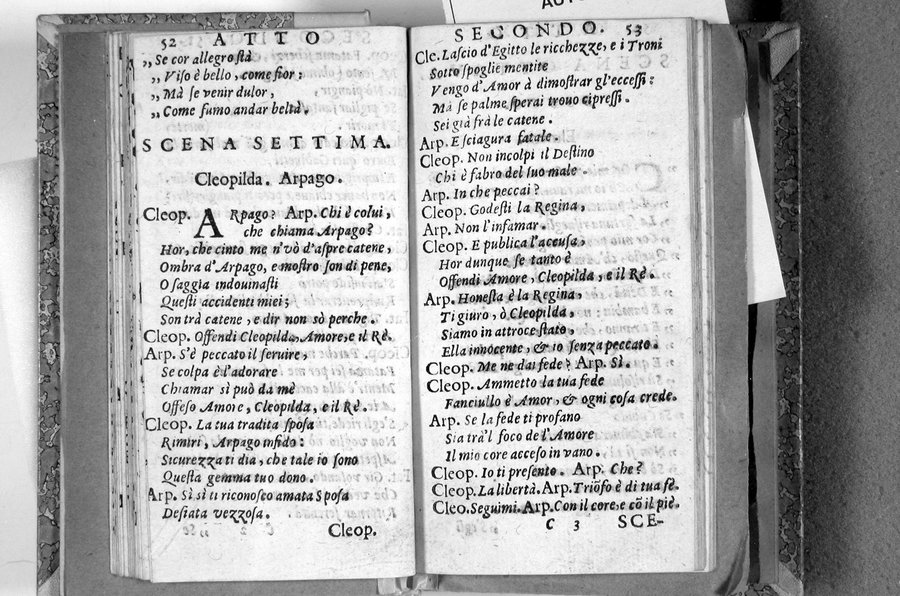 AUTO
52 ATTO
„Se cor allegro stà
„Viso è bello, come fior:
„Mà se venir dulor,
„Come fumo andar beltà.
SCENA SETTIMA.
Cleopilda. Arpago.
Cleop. ARpago? Arp. Chi è colui,
che chiama Arpago?
Hor, che cinto me n'vò d'aspre catene,
Ombra d'Arpago, e mostro son di pene,
O saggia indouinasti
Questi accidenti miei;
Son trà catene, e dir non sò perche.
Cleop. Offendi Cleopilda, Amore, e il Rè.
Arp. S'è peccato il seruire,
Se colpa è l'adorare
Chiamar sì può da mè
Offeso Amore, Cleopilda, e il Rè.
Cleop. La tua tradita sposa
Rimiri, Arpago infido:
Sicurezza ti dia, che tale io sono
Questa gemma tuo dono.
Arp. Sì sì ti riconosco amata Sposa
Desiata vezzosa.
Cleop.
SECONDO. 53
Cle. Lascio d'Egitto le ricchezze, e i Troni
Sotto spoglie mentite
Vengo d'Amor à dimostrar gl'eccessi:
Mà se palme sperai trouo cipressi.
Sei già frà le catene.
Arp. E sciagura fatale.
Cleop. Non incolpi il Destino
Chi è fabro del suo male.
Arp. In che peccai?
Cleop. Godesti la Regina,
Arp. Non l'infamar.
Cleop. E publica l'accusa,
Hor dunque se tanto è
Offendi Amore, Cleopilda, e il Rè.
Arp. Honesta è la Regina,
Ti giuro, ò Cleopilda,
Siamo in attroce stato,
Ella innocente, & io senza peccato.
Cleop. Me ne dai fede? Arp. Sì.
Cleop. Ammetto la tua fede
Fanciullo è Amor, & ogni cosa crede.
Arp. Se la fede ti profano
Sia trà'l foco de l'Amore
Il mio core acceso in vano.
Cleop. Io ti presento. Arp. Che?
Cleop. La libertà. Arp. Triōfo è di tua fè.
Cleo. Seguimi. Arp. Con il core, e cō il piè.
C 3 SCE-